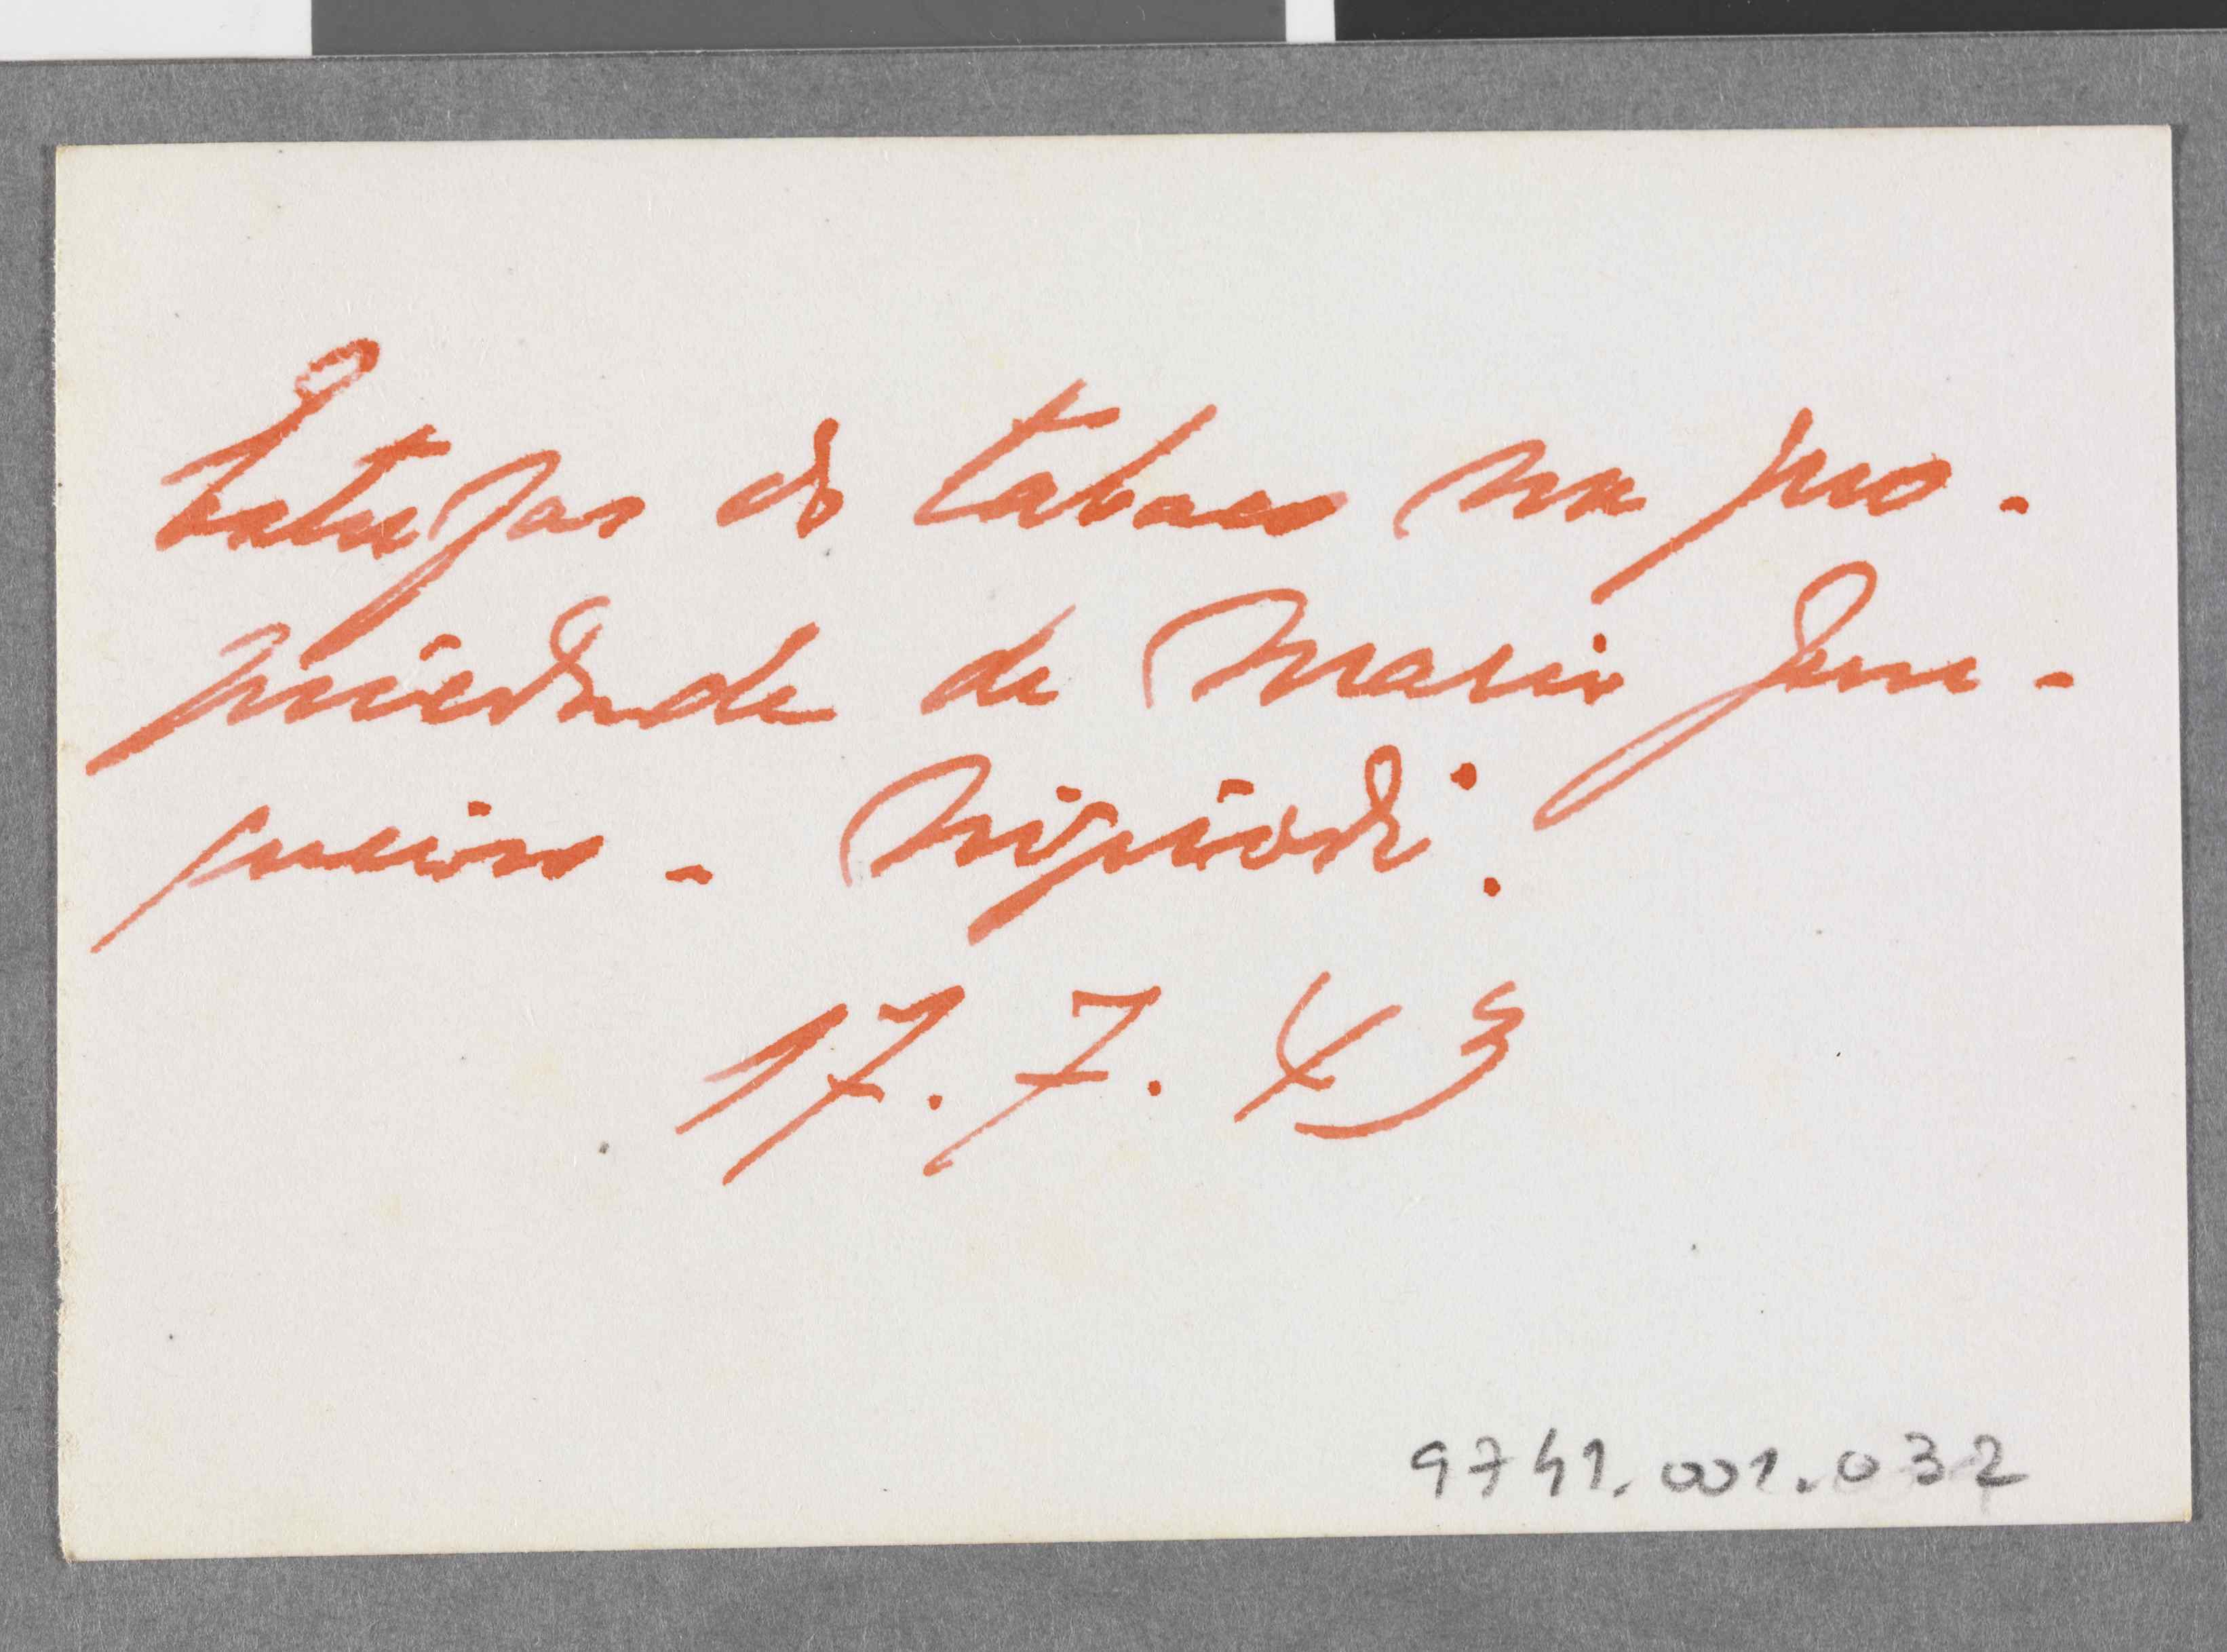 Estufas de tabaco na pro-
priedade de Mario Jun-
queira - Nipiodi.
17.7.43
9741.001.032